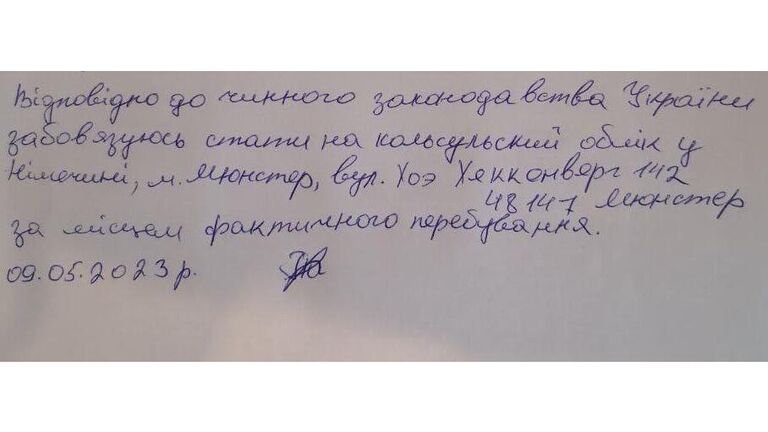 Відповідно до чинного законодавства України
забов'язуюсь стати на кольсульский облік у
Німечині, м. Мюнстер, вул. Хоэ Хекконверг 142
48147 Мюнстер
за місцем фактичного перебування.
09.05.2023 р.